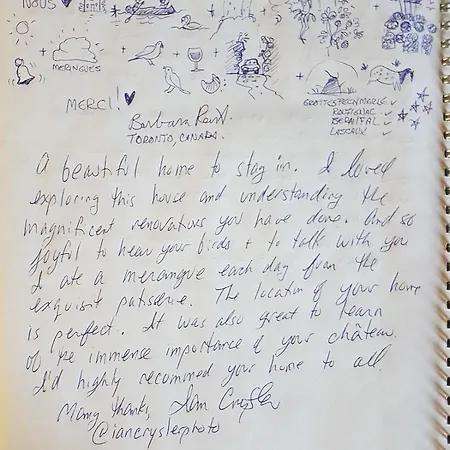 NOUS
MERINGUES
MERCI!
Barbara
TORONTO, CANADA.
ROUFFIGNAC ✓
LASCAUX ✓
A beautiful home to stay in. I loved
exploring this house and understanding the
magnificent renovations you have done. And so
joyful to hear your birds + to talk with you
I ate a merangue each day from the
exquisit patiserie. The location of your home
is perfect. It was also great to learn
of the immense importance of your château.
I'd highly recommed your home to all.
Many thanks, Ian Crysler
@iancryslerphoto